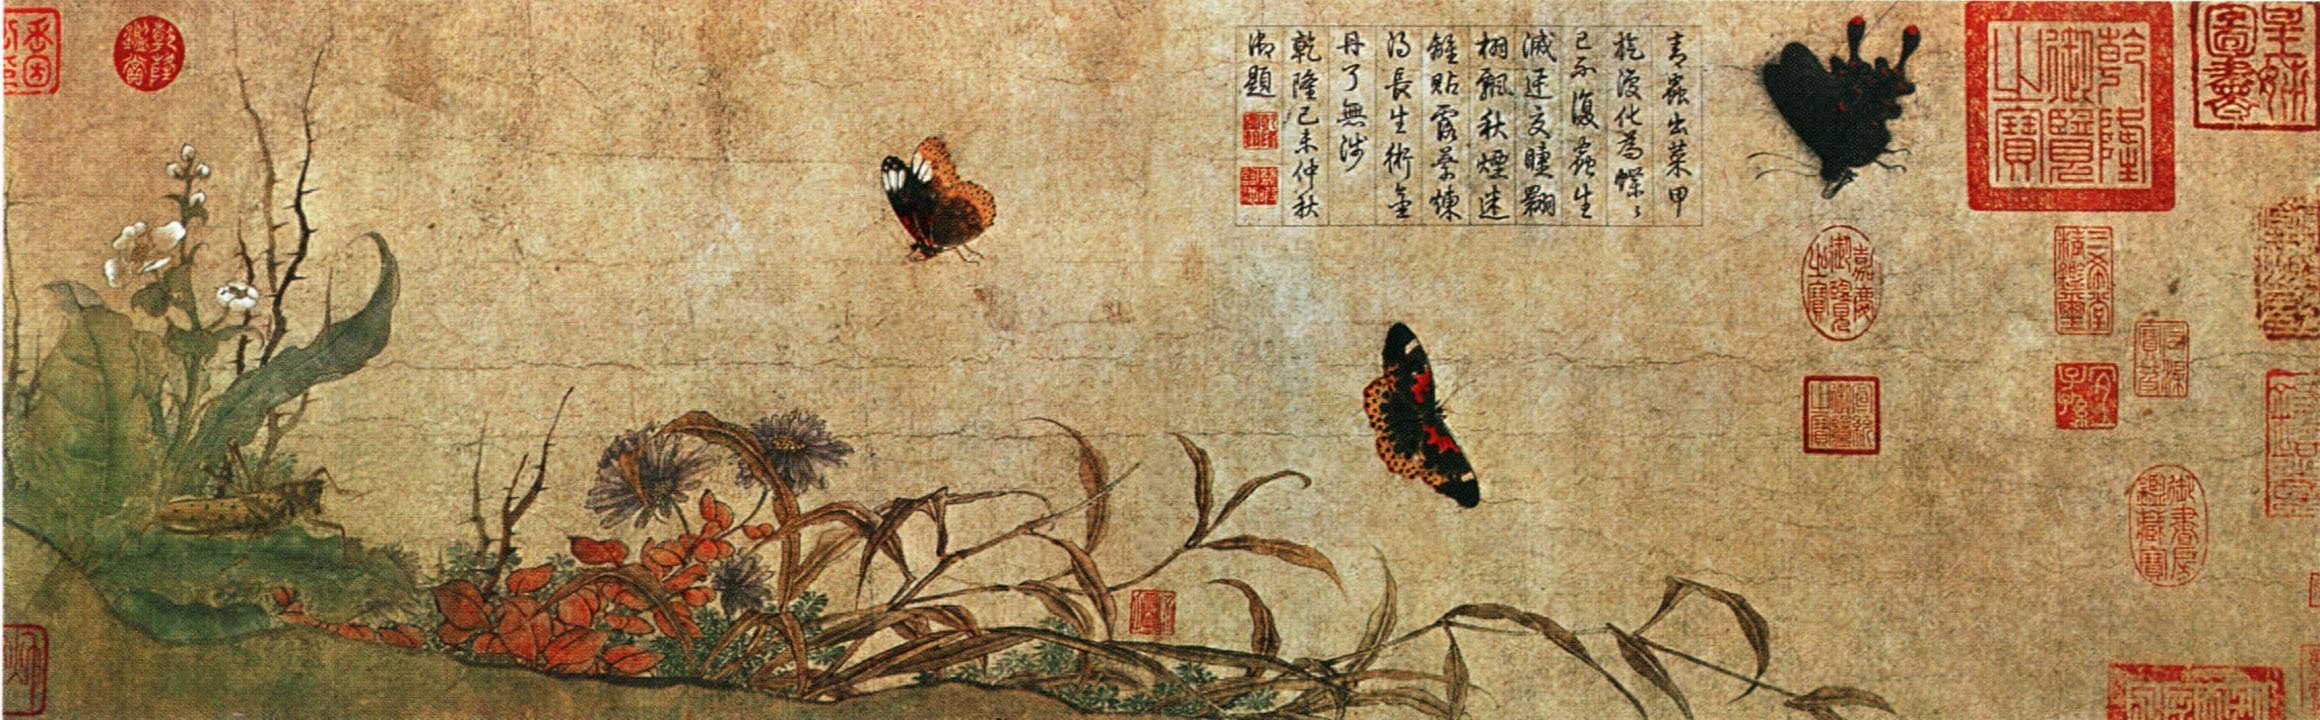 皇姊圖書
乾隆御覽之寶
三希堂精鑑璽
宜子孫
御書房鑑藏寶
嘉慶御覽之寶
宣統御覽之寶
青蟲出菜甲
旋復化為蝶〻
已不復蟲生
滅速交睫翾
栩飄秋煙迷
離貼露葉煉
得長生術金
丹了無涉
乾隆己未仲秋
御題
乾隆鑑賞